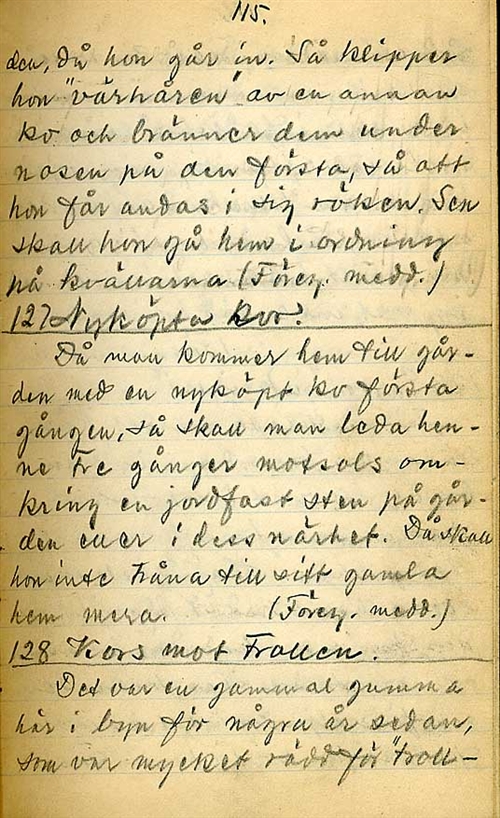 115.
den, då hon går in. Så klipper
hon "vårhåren" av en annan
ko och bränner dem under
nosen på den första, så att
hon får andas i sig röken. Sen
skall hon gå hem i ordning
på kvällarna (Föreg. medd.)
127 Nyköpta kor.
Då man kommer hem till går-
den med en nyköpt ko första
gången, så skall man leda hen-
ne tre gånger motsols om-
kring en jordfast sten på går-
den eller i dess närhet. Då skall
hon inte tråna till sitt gamla
hem mera. (Föreg. medd.)
128 Kors mot Trollen.
Det var en gammal gumma
här i byn för några år sedan,
som var mycket rädd för "troll-